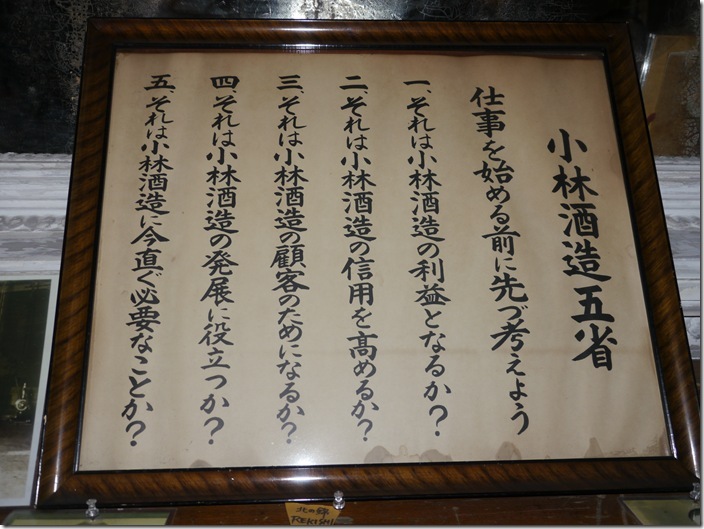 小林酒造五省
仕事を始める前に先づ考えよう
一、それは小林酒造の利益となるか?
二、それは小林酒造の信用を高めるか?
三、それは小林酒造の顧客のためになるか?
四、それは小林酒造の発展に役立つか?
五、それは小林酒造に今直ぐ必要なことか?